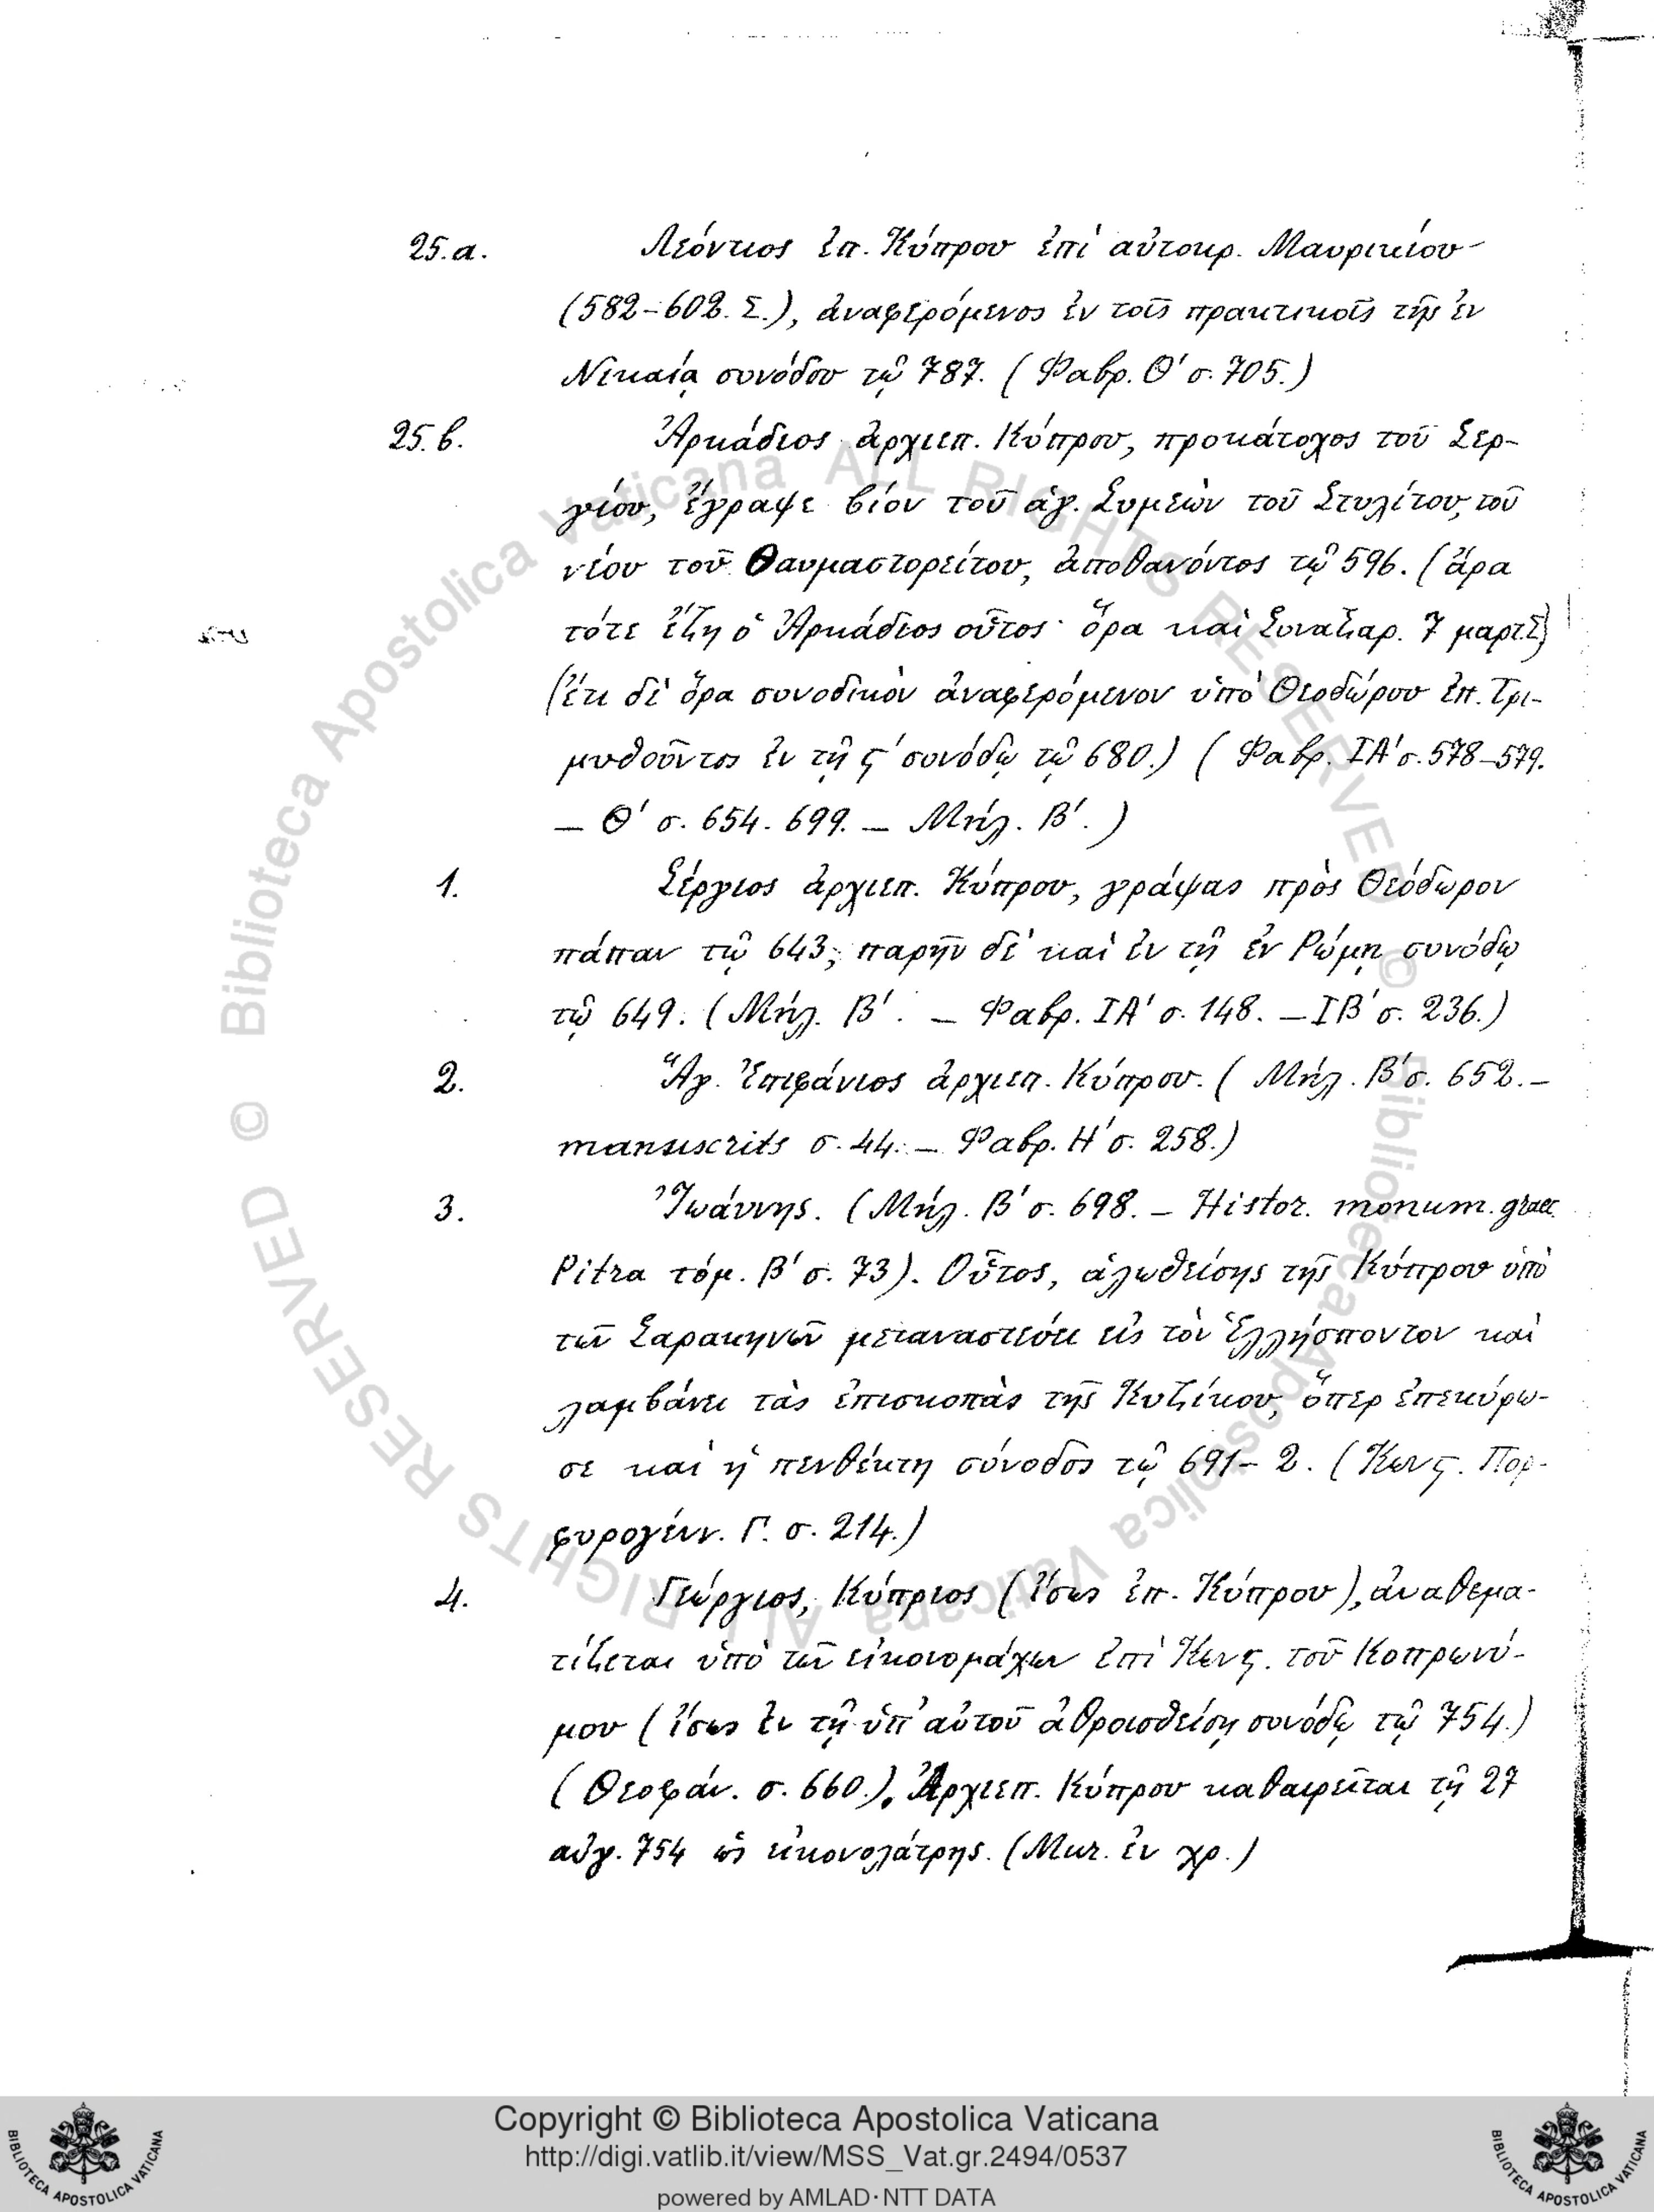 25.α. Λεόντιος ἐπ. Κύπρου ἐπὶ αὐτοκρ. Μαυρικίου
(582-602. Σ.), ἀναφερόμενος ἐν τοῖς πρακτικοῖς τῆς ἐν
Νικαίᾳ συνόδου τῷ 787. (Φαβρ. Θ' σ. 705.)
25.β. Ἀρκάδιος ἀρχιεπ. Κύπρου, προκάτοχος τοῦ Σερ-
γίου, ἔγραψε βίον τοῦ ἁγ. Συμεὼν τοῦ Στυλίτου, τοῦ
νέου τοῦ Θαυμαστορείτου, ἀποθανόντος τῷ 596. (ἄρα
τότε ἔζη ὁ Ἀρκάδιος οὗτος· ὅρα καὶ Συναξαρ. 7 μαρτ.Σ)
(ἔτι δὲ ὅρα συνοδικὸν ἀναφερόμενον ὑπὸ Θεοδώρου ἐπ. Τρι-
μυθοῦντος ἐν τῇ ϛ' συνόδῳ τῷ 680.) (Φαβρ. ΙΑ' σ. 578-579.
— Θ' σ. 654. 699. — Μήλ. Β'.)
1. Σέργιος ἀρχιεπ. Κύπρου, γράψας πρὸς Θεόδωρον
πάπαν τῷ 643; παρῆν δὲ καὶ ἐν τῇ ἐν Ρώμῃ συνόδῳ
τῷ 649. (Μήλ. Β'. — Φαβρ. ΙΑ' σ. 148. — ΙΒ' σ. 236.)
2. Ἅγ. Ἐπιφάνιος ἀρχιεπ. Κύπρου. (Μήλ. Β' σ. 652. —
manuscrits σ. 44. — Φαβρ. Η' σ. 258.)
3. Ἰωάννης. (Μήλ. Β' σ. 698. — Histor. monum. graec.
Pitra τόμ. Β' σ. 73). Οὗτος, ἁλωθείσης τῆς Κύπρου ὑπὸ
τῶν Σαρακηνῶν μεταναστεύει εἰς τὸν Ἑλλήσποντον καὶ
λαμβάνει τὰς ἐπισκοπὰς τῆς Κυζίκου, ὅπερ ἐπεκύρω-
σε καὶ ἡ πενθέκτη σύνοδος τῷ 691-2. (Κωνϛ. Πορ-
φυρογένν. Γ. σ. 214.)
4. Γεώργιος, Κύπριος (ἴσως ἐπ. Κύπρου), ἀναθεμα-
τίζεται ὑπὸ τῶν εἰκονομάχων ἐπὶ Κωνϛ. τοῦ Κοπρωνύ-
μου (ἴσως ἐν τῇ ὑπ' αὐτοῦ ἀθροισθείσῃ συνόδῳ τῷ 754.)
(Θεοφάν. σ. 660.). Ἀρχιεπ. Κύπρου καθαιρεῖται τῇ 27
αὐγ. 754 ὡς εἰκονολάτρης. (Μιχ. ἐν χρ.)
© Biblioteca Apostolica Vaticana ALL RIGHTS RESERVED
© Biblioteca Apostolica Vaticana ALL RIGHTS RESERVED
Copyright © Biblioteca Apostolica Vaticana
http://digi.vatlib.it/view/MSS_Vat.gr.2494/0537
powered by AMLAD·NTT DATA
BIBLIOTECA APOSTOLICA VATICANA
BIBLIOTECA APOSTOLICA VATICANA